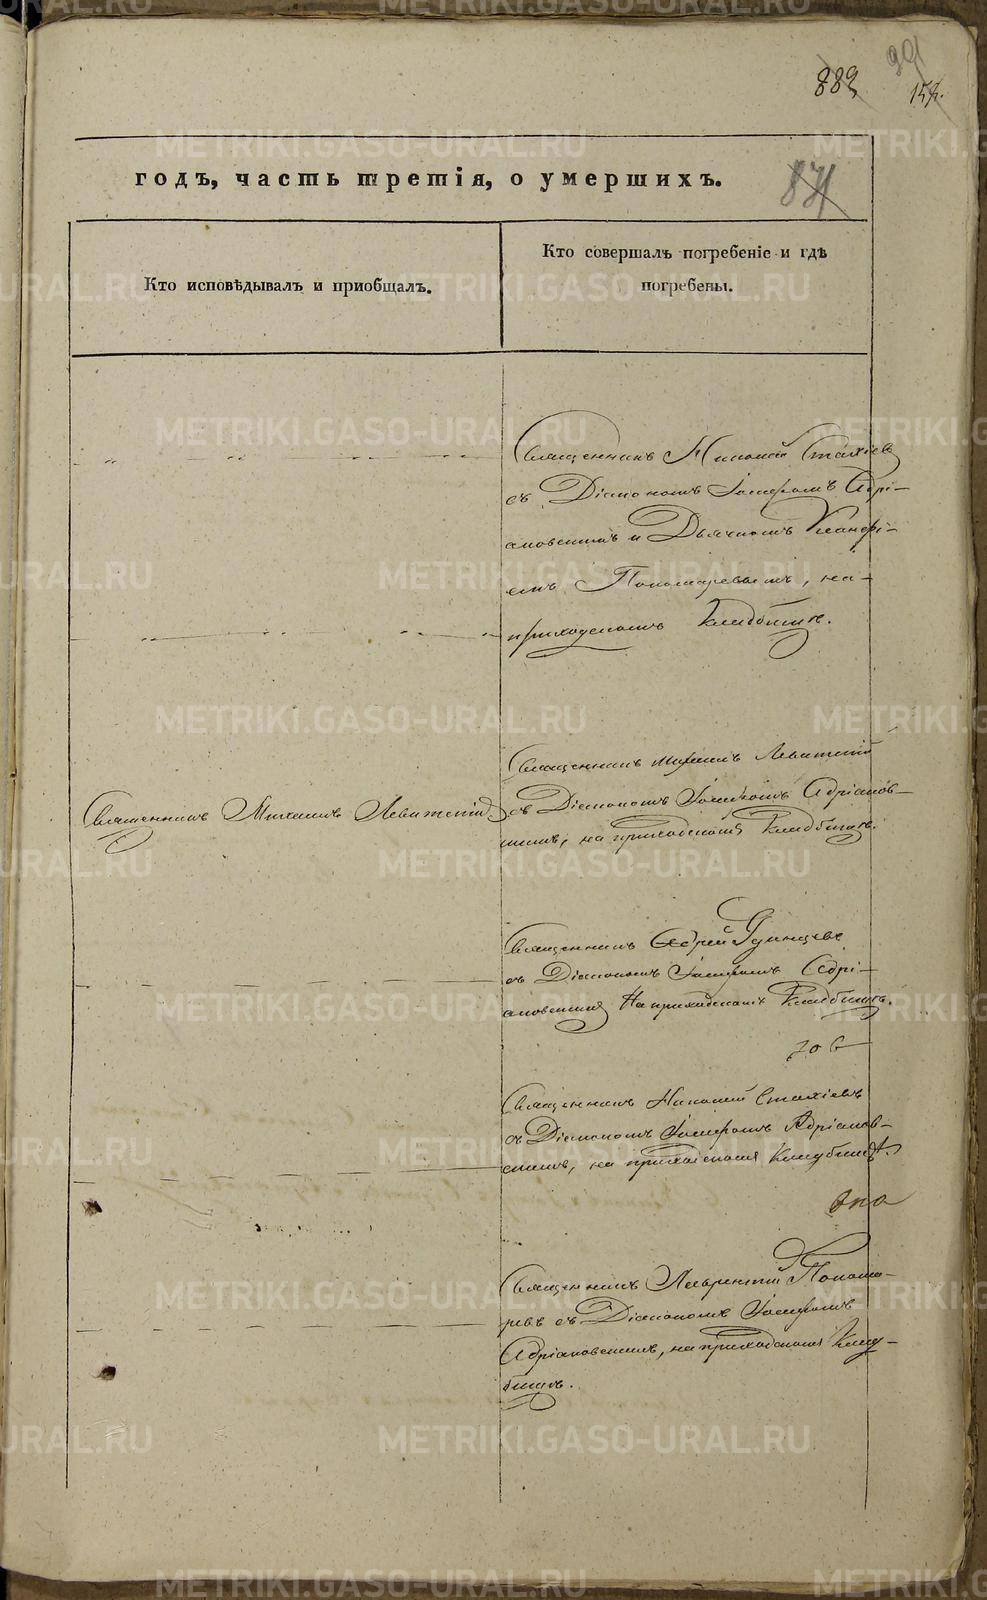 889
годъ, часть третія, о умершихъ.
Кто исповѣдывалъ и приобщалъ.
Кто совершалъ погребеніе и гдѣ
погребены.
Священникъ Николай Стахіев
съ Діакономъ Іосифомъ Адрі-
ановскимъ и Дьячкомъ
емъ Пономаревымъ, на
приходскомъ Кладбищѣ.
Священникъ Михаилъ Левитскій
Священникъ Михаилъ Левитскій
съ Діакономъ Іосифомъ Адріанов-
скимъ, на приходскомъ Кладбищѣ.
Священникъ Удинцевъ
съ Діакономъ Іосифомъ Адрі-
ановскимъ На приходскомъ Кладбищѣ.
Священникъ Николай Стахіевъ
съ Діакономъ Іосифомъ Адріанов-
скимъ, на приходскомъ Кладбищѣ.
Священникъ Лаврентій Понома-
ревъ съ Діакономъ Іосифомъ
Адріановскимъ, на приходскомъ Клад-
бищѣ.
METRIKI.GASO-URAL.RU